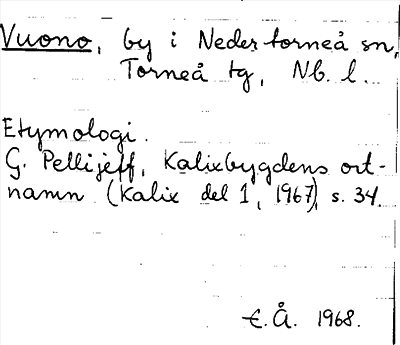 Vuono, by i Nedertorneå sn,
Torneå tg, Nb. l.
Etymologi.
G. Pellijeff, Kalixbygdens ort-
namn (Kalix del 1, 1967), s. 34.
E. Å. 1968.